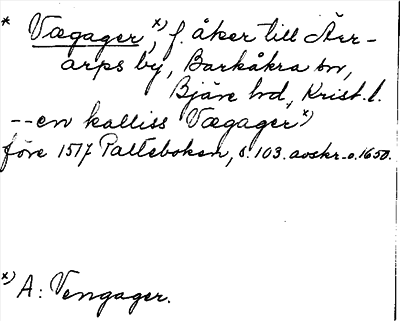 * Vægager,x) f. åker till Ärr-
arps by, Barkåkra sn,
Bjäre hd, Krist. l.
-- en kalliss Vægager x)
före 1517 Palteboken, s. 103. avskr. o. 1650.
x) A: Vengager.